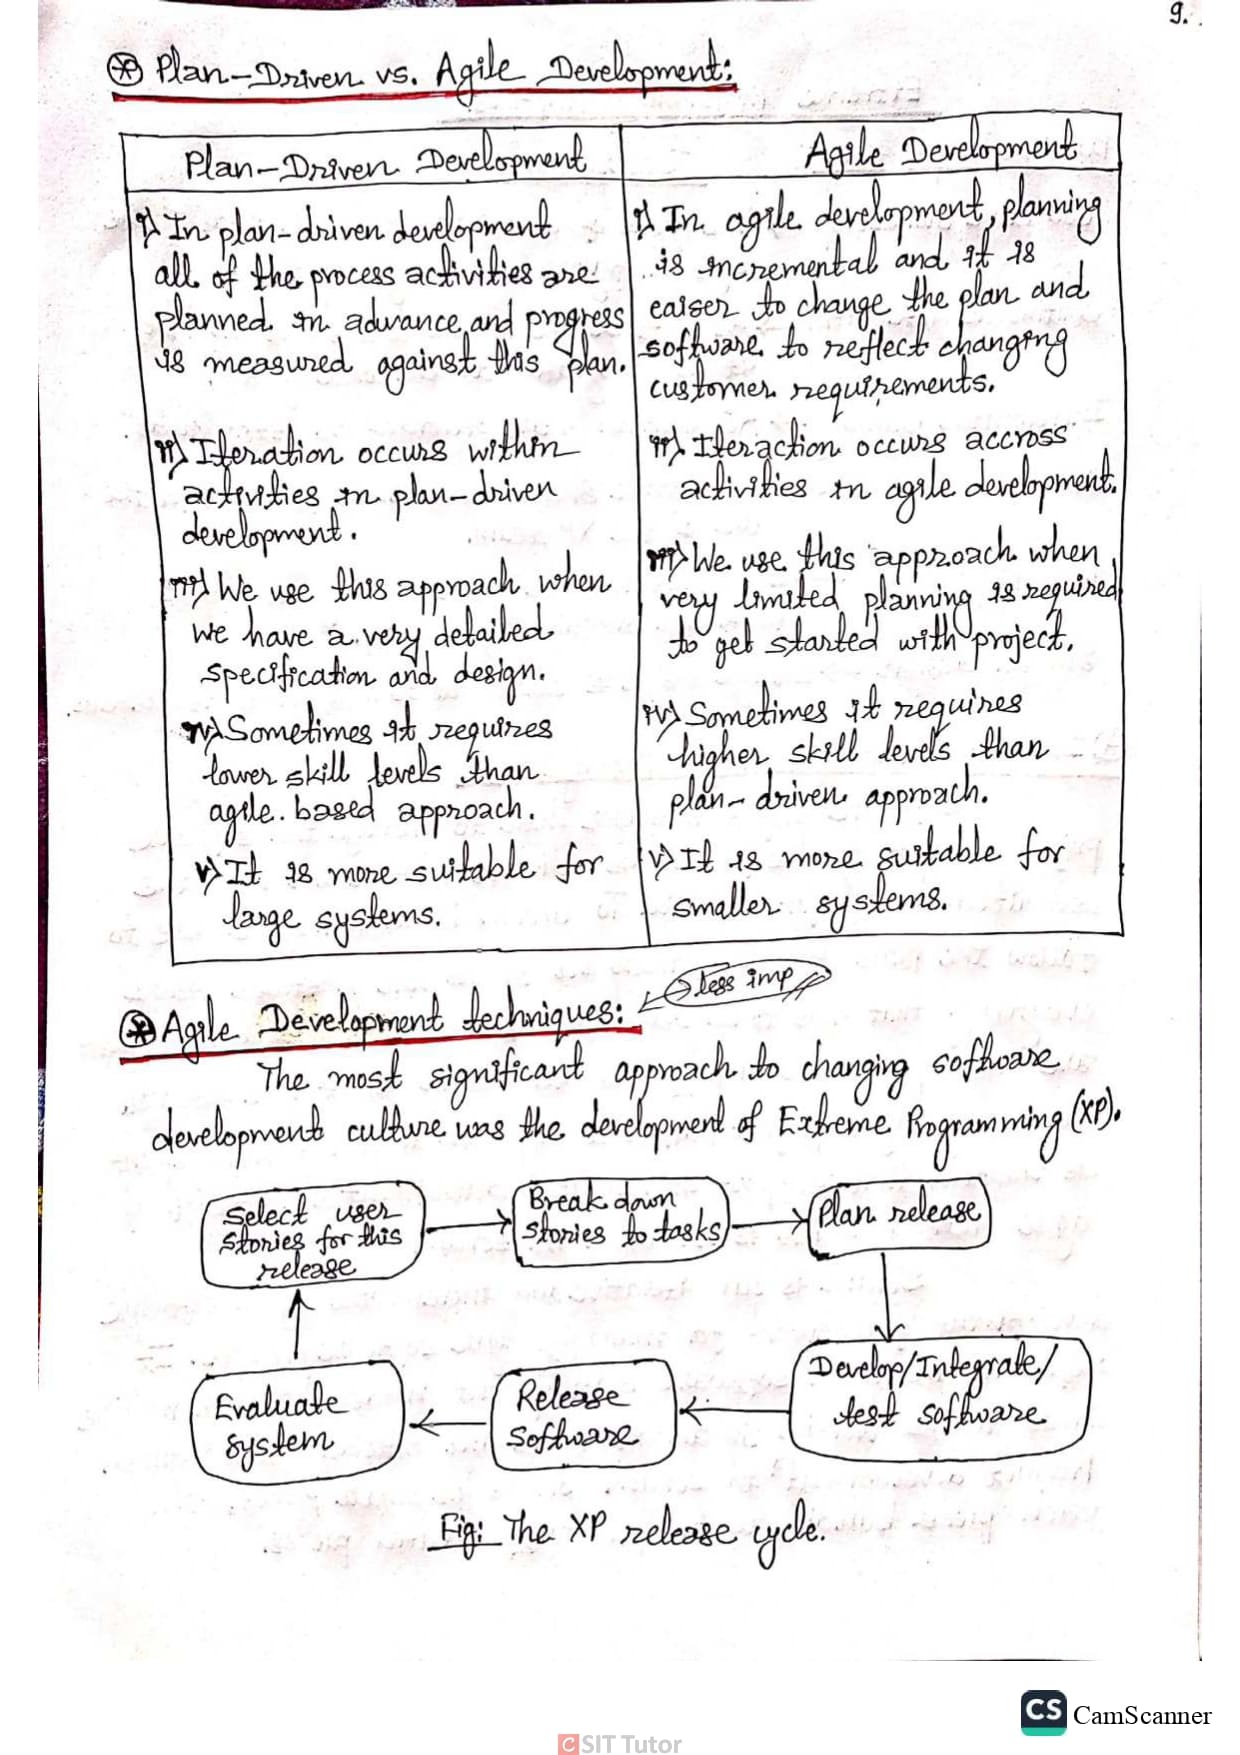 9.
Plan-Driven vs. Agile Development:
Plan-Driven Development
i) In plan-driven development
all of the process activities are
planned in advance and progress
is measured against this plan.
ii) Iteration occurs within
activities in plan-driven
development.
iii) We use this approach when
we have a very detailed
specification and design.
iv) Sometimes it requires
lower skill levels than
agile based approach.
v) It is more suitable for
large systems.
Agile Development
i) In agile development, planning
is incremental and it is
eaiser to change the plan and
software to reflect changing
customer requirements.
ii) Iteraction occurs accross
activities in agile development.
iii) We use this approach when
very limited planning is required
to get started with project.
iv) Sometimes it requires
higher skill levels than
plan-driven approach.
v) It is more suitable for
smaller systems.
Agile Development techniques:
less imp
The most significant approach to changing software
development culture was the development of Extreme Programming (XP).
Select user
stories for this
release
Break down
stories to tasks
Plan release
Develop/Integrate/
test software
Release
Software
Evaluate
system
Fig: The XP release cycle.
CS CamScanner
CSIT Tutor